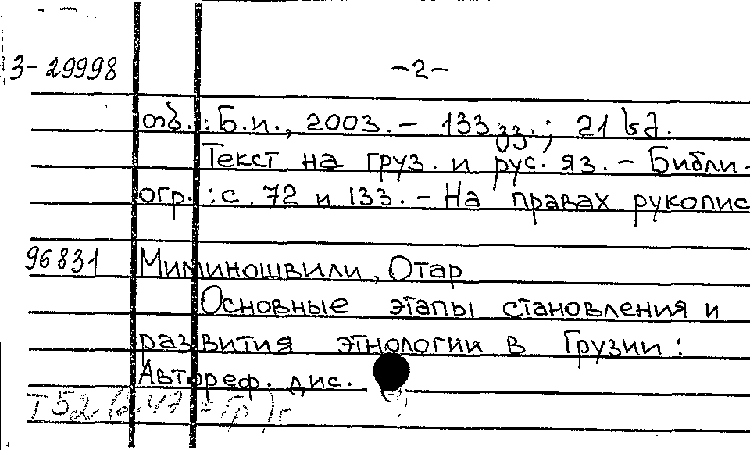 3-29998 -2-
თბ.: Б.и., 2003. - 133 გვ.; 21 სმ.
Текст на груз. и рус. яз. - Библи-
огр.: с. 72 и 133. - На правах рукопис
96831 Миминошвили, Отар
Основные этапы становления и
развития этнологии в Грузии:
Автореф. дис.